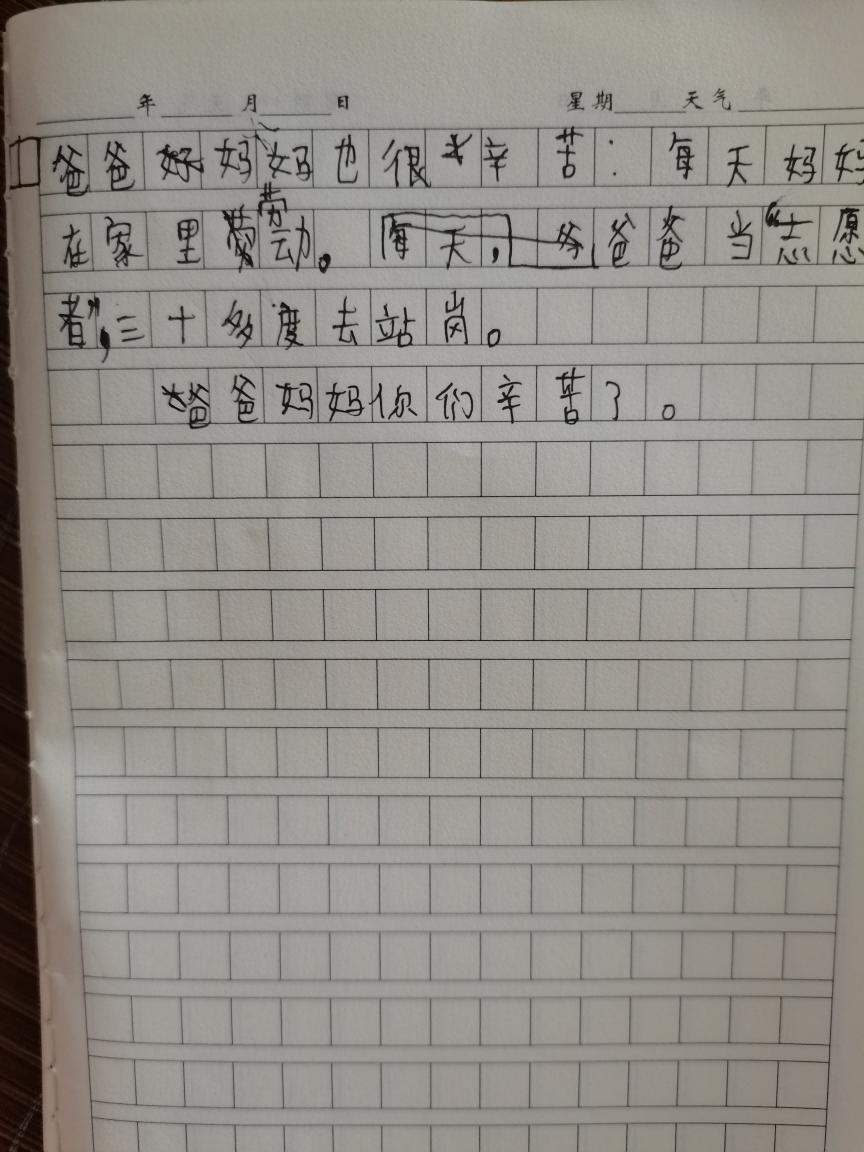 年 月 日 星期 天气
爸爸妈妈也很辛苦：每天妈妈
在家里劳动。每天，爸爸当“志愿
者”，三十多度去站岗。
爸爸妈妈你们辛苦了。